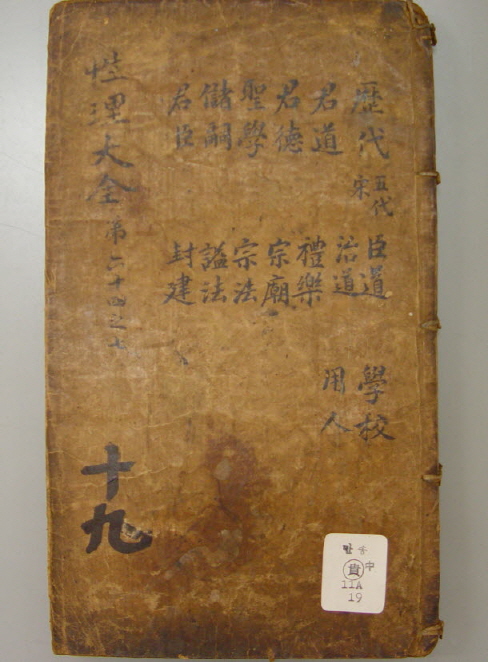 歷代
五代
宋
君道
君德
聖學
儲嗣
君臣
臣道
治道
禮樂
宗廟
宗法
謚法
封建
學校
用人
性理大全 第六十四之七
十九
貴 中
IIA
19